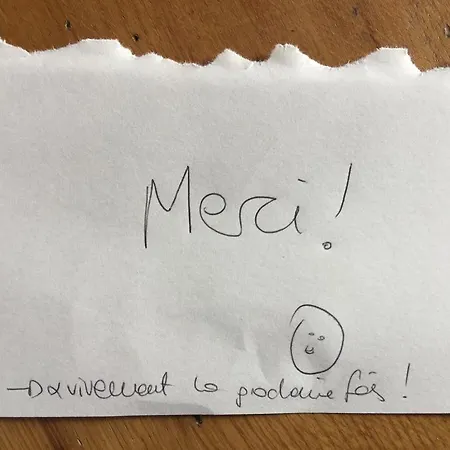 Merci !
→ vivement la prochaine fois !